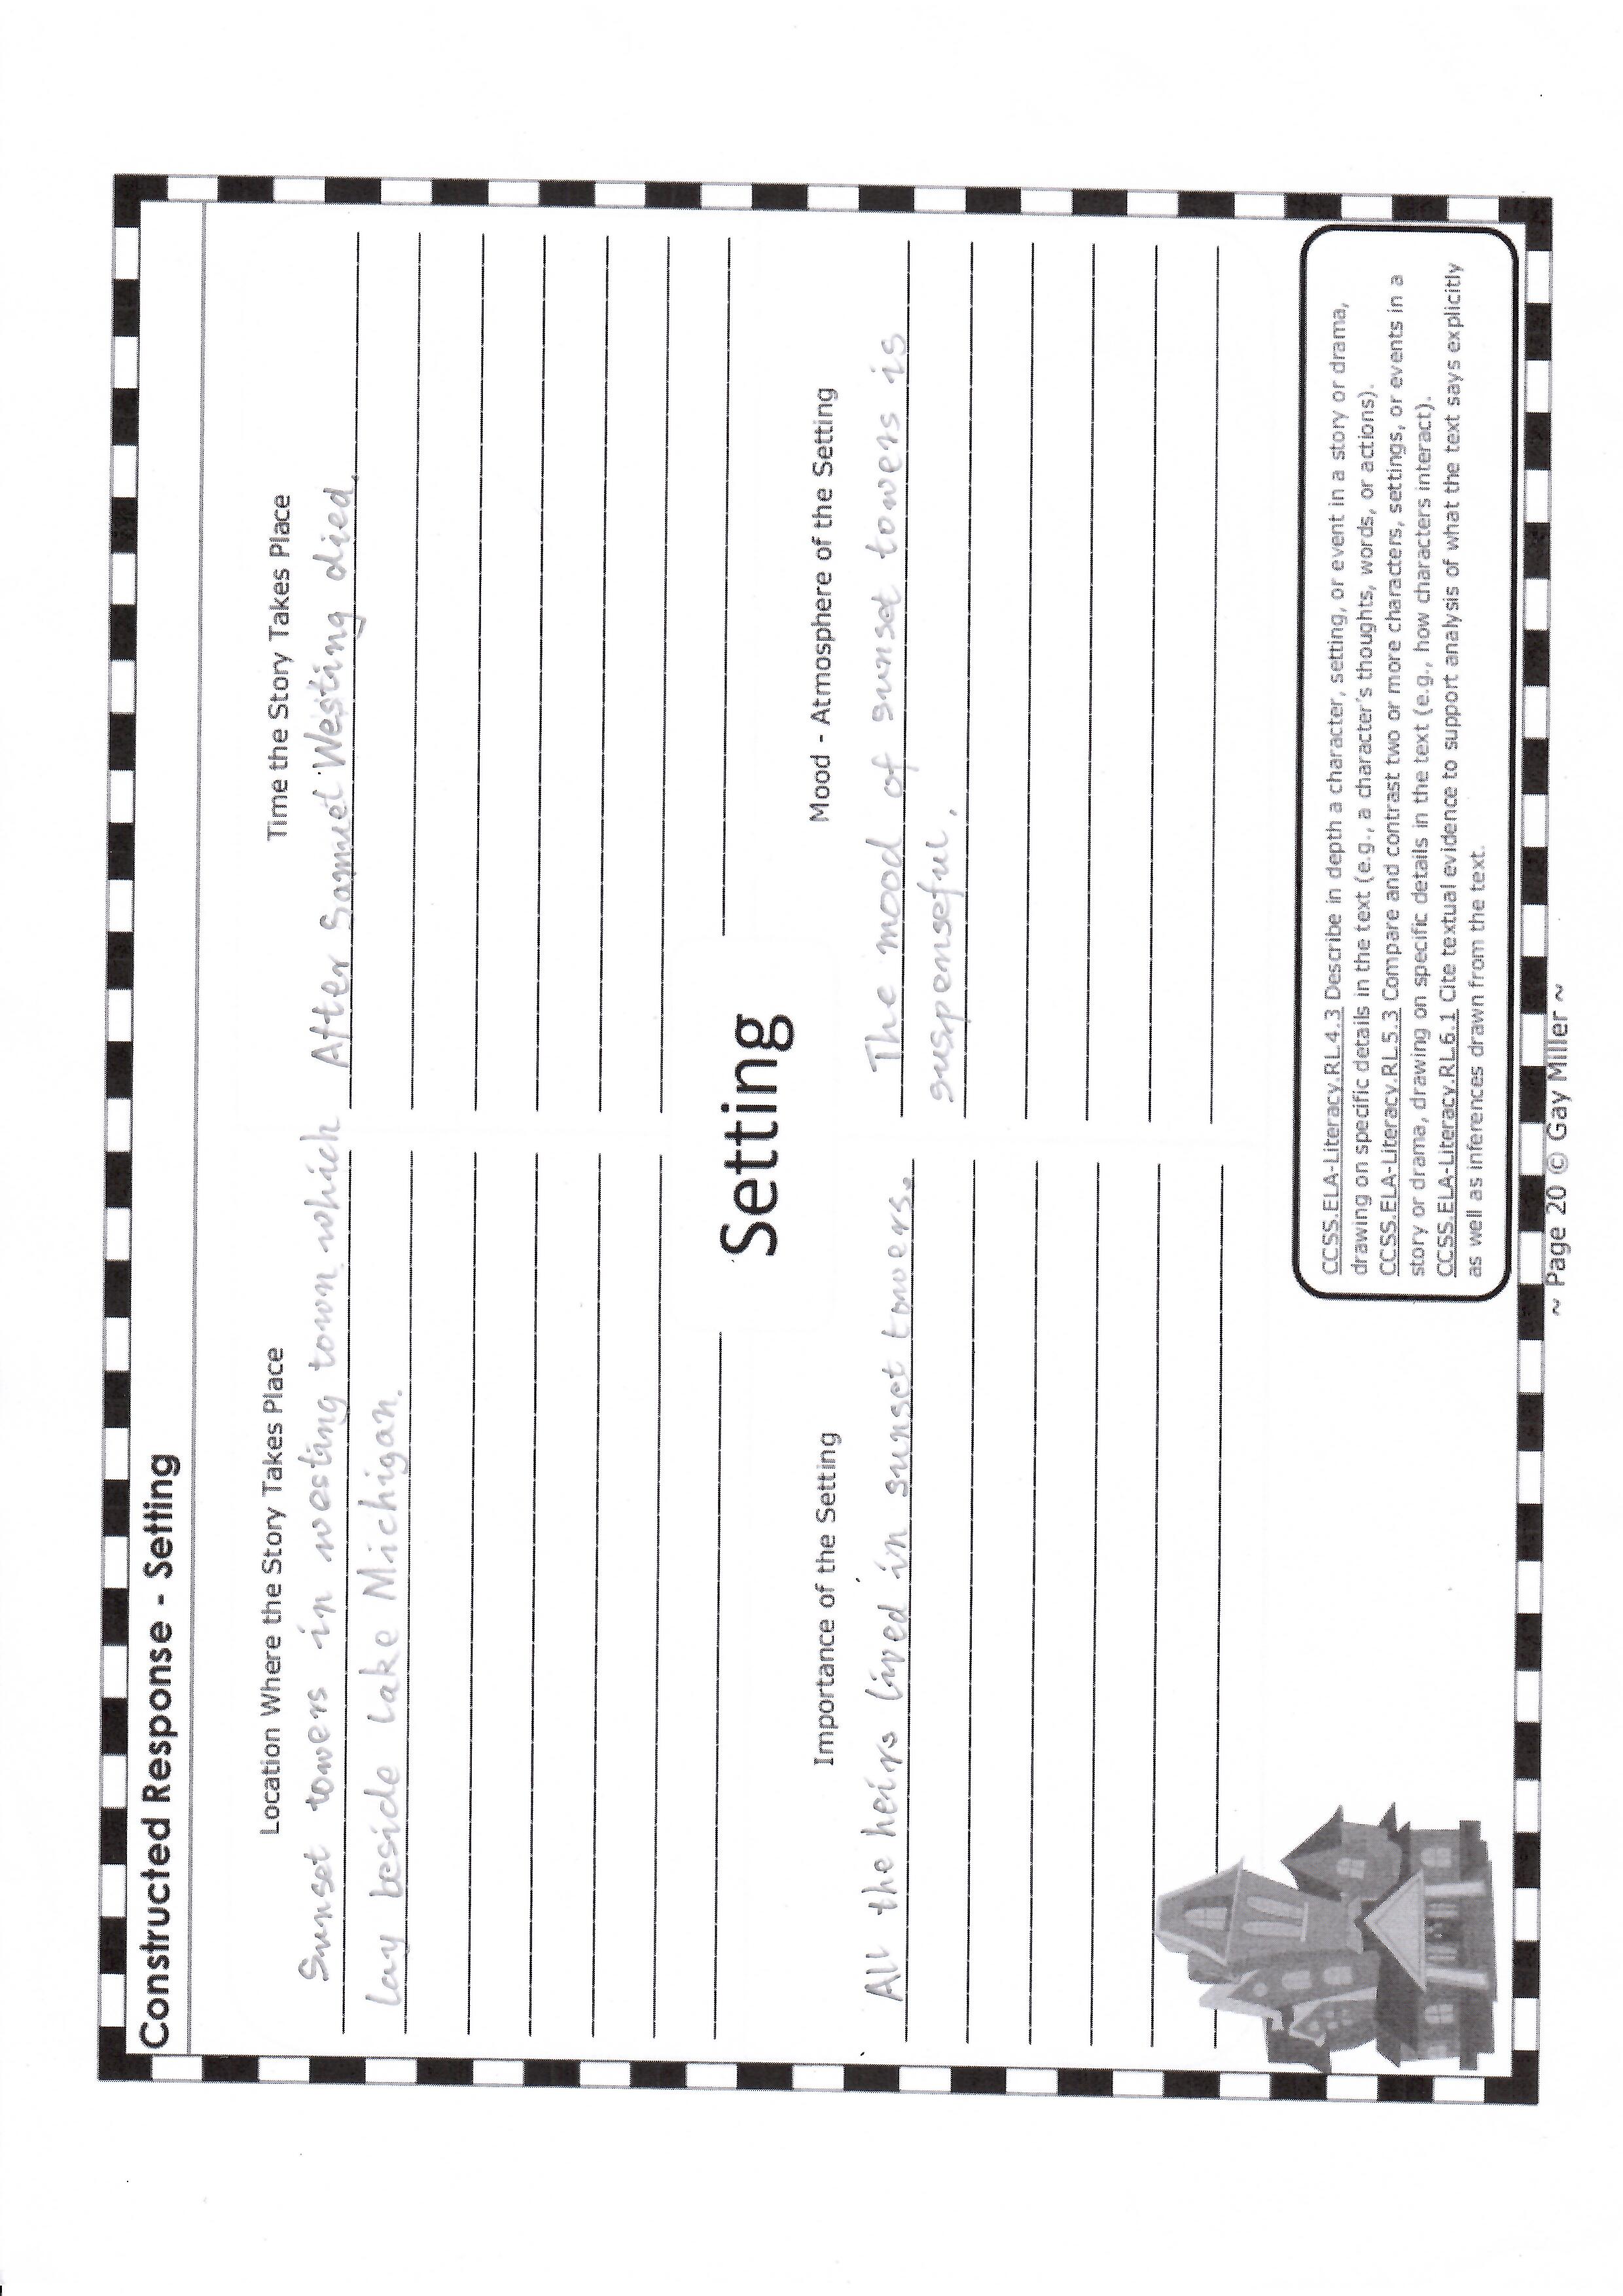 Constructed Response - Setting
Location Where the Story Takes Place
Sunset towers in westing town which
lay beside Lake Michigan.
Time the Story Takes Place
After Samuel Westing died.
Setting
Importance of the Setting
All the heirs lived in sunset towers.
Mood - Atmosphere of the Setting
The mood of sunset towers is
suspenseful.
CCSS.ELA-Literacy.RL.4.3 Describe in depth a character, setting, or event in a story or drama,
drawing on specific details in the text (e.g., a character's thoughts, words, or actions).
CCSS.ELA-Literacy.RL.5.3 Compare and contrast two or more characters, settings, or events in a
story or drama, drawing on specific details in the text (e.g., how characters interact).
CCSS.ELA-Literacy.RL.6.1 Cite textual evidence to support analysis of what the text says explicitly
as well as inferences drawn from the text.
~ Page 20 © Gay Miller ~